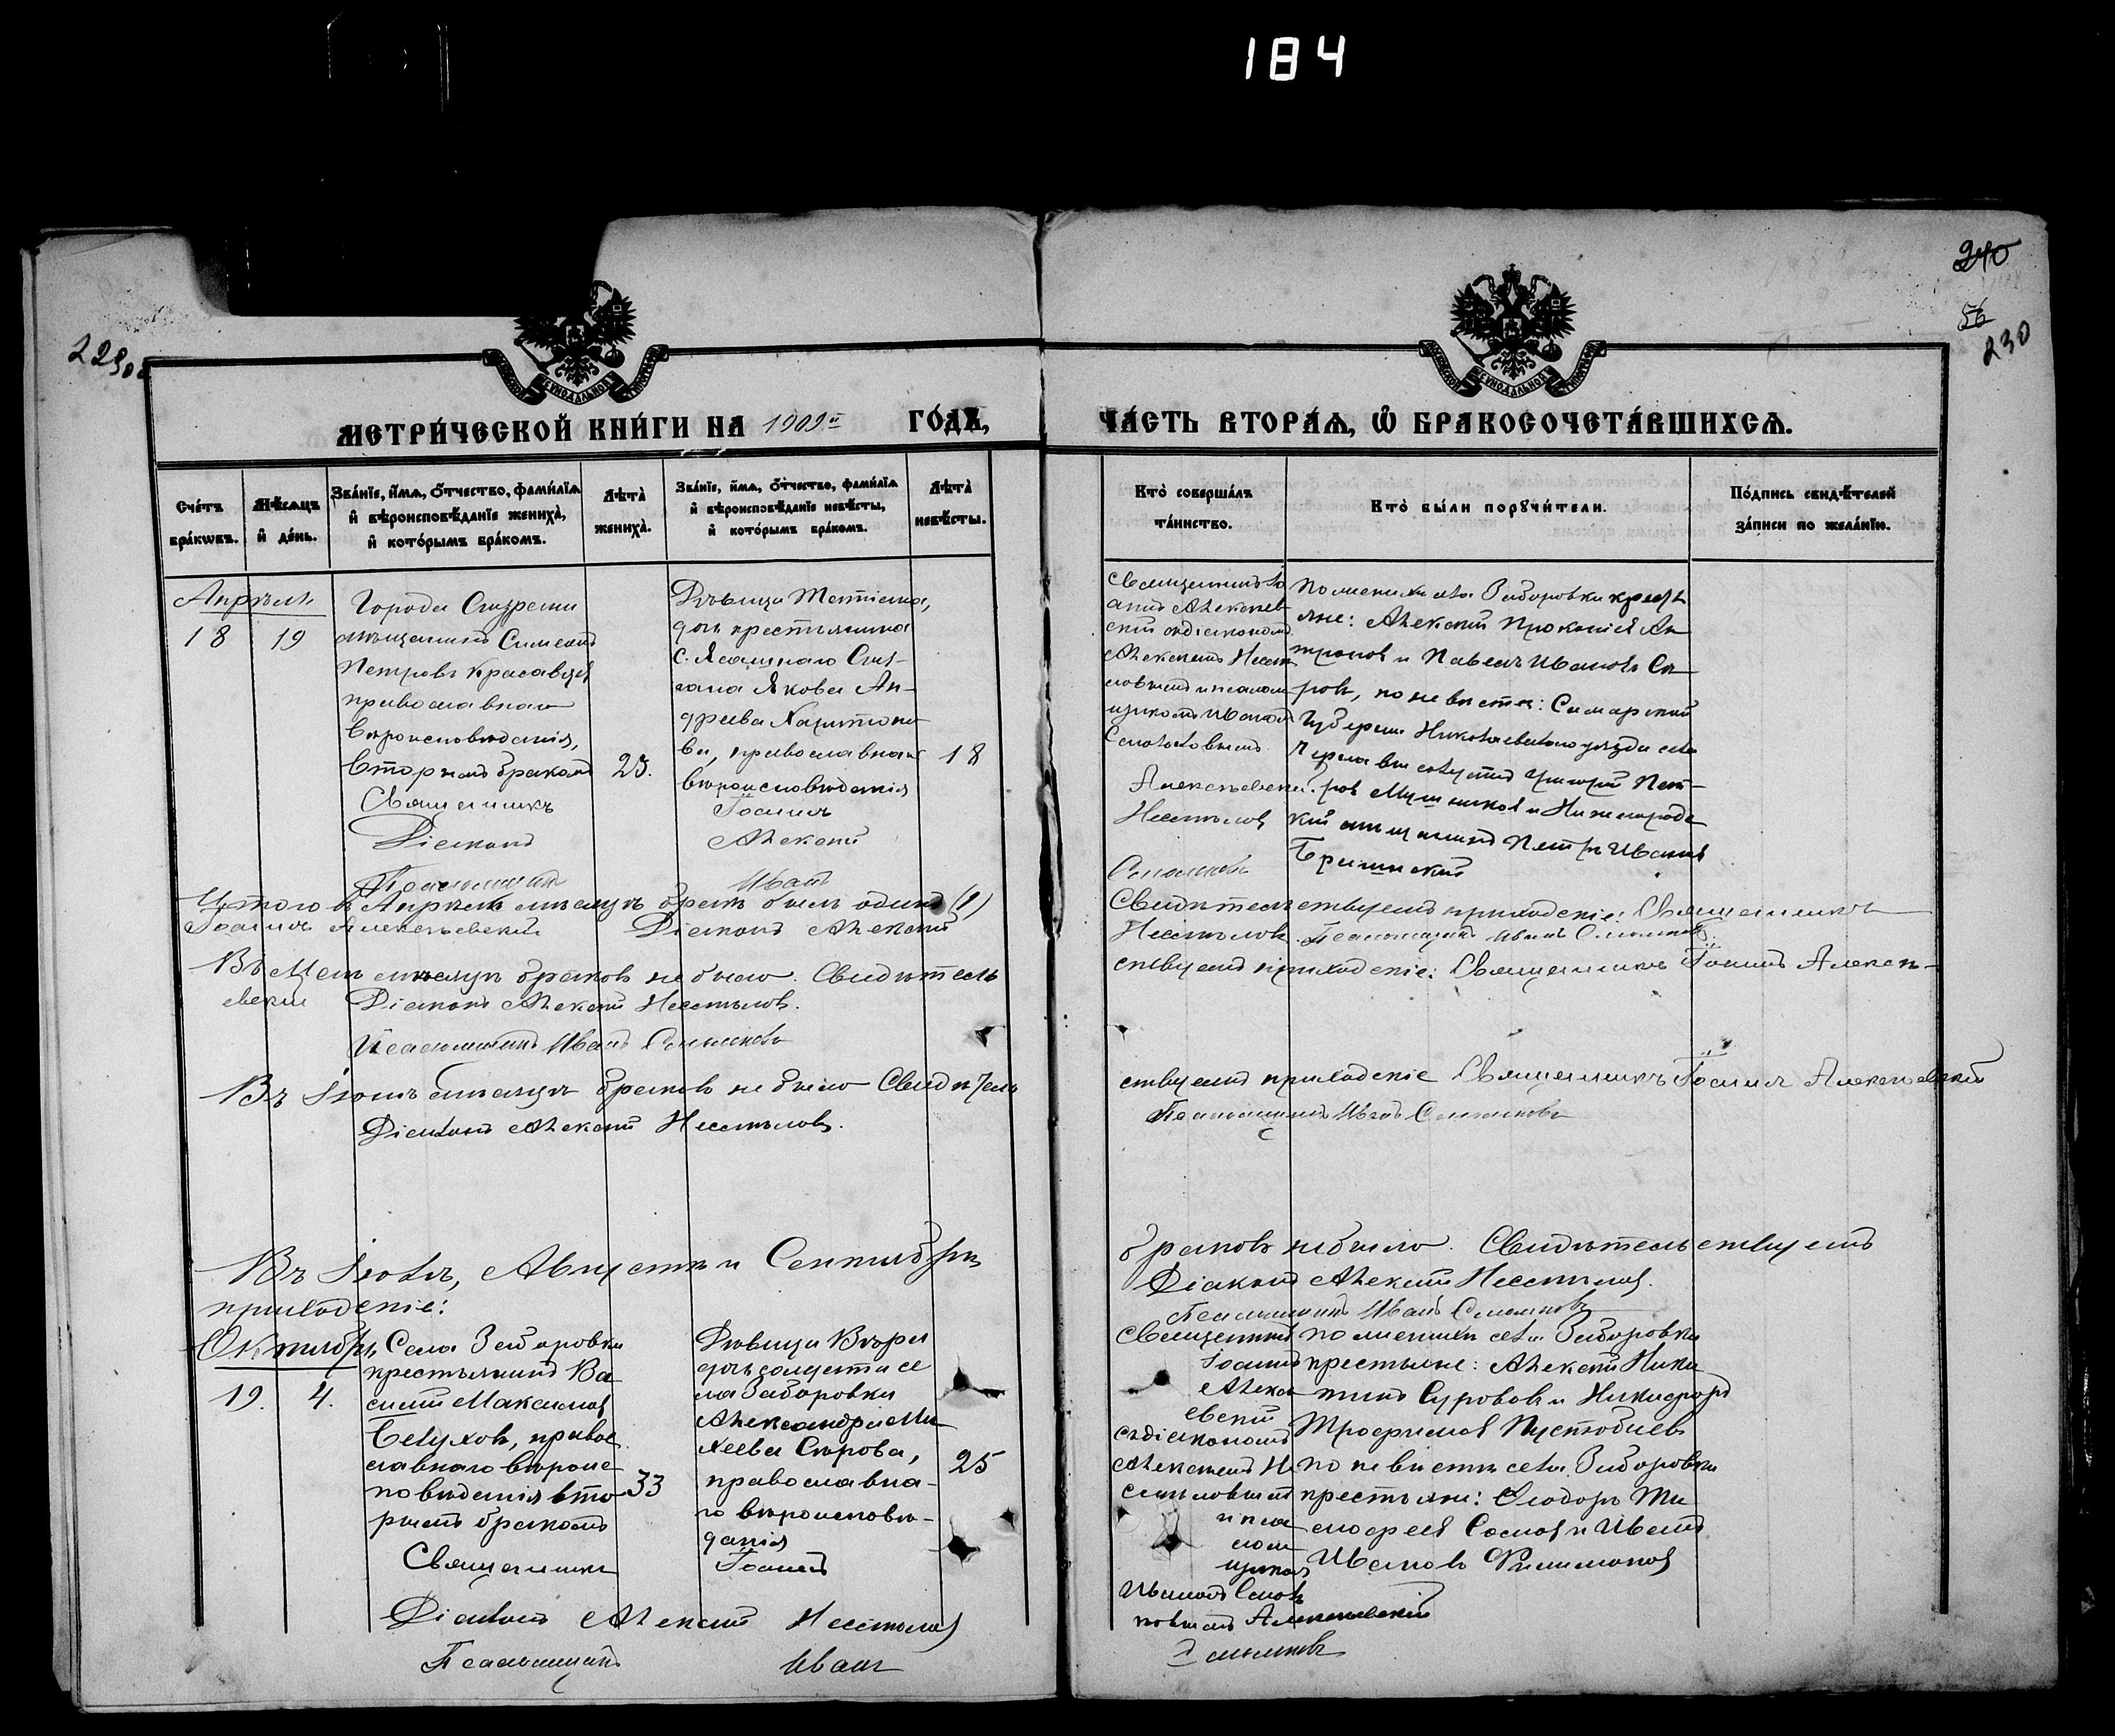 184
240
56
230
МЕТРИ́ЧЕСКОЙ КНИ́ГИ НА 1909й ГО́ДЪ,
ЧА́СТЬ ВТОРА́Ѧ, Ѡ҆ БРАКОСОЧЕТА́ВШИХСѦ.
Сче́тъ бра́кѡвъ.
Мѣ́сѧцъ и҆ де́нь.
Зва́нїе, и҆́мѧ, ѻ҆́тчество, фами́лїѧ и҆ вѣроисповѣ́данїе жениха̀, и҆ кото́рымъ бра́комъ.
Лѣ́та̀ жениха̀.
Зва́нїе, и҆́мѧ, ѻ҆́тчество, фами́лїѧ и҆ вѣроисповѣ́данїе невѣ́сты, и҆ кото́рымъ бра́комъ.
Лѣ́та̀ невѣ́сты.
Кто̀ соверша́лъ та́инство.
Кто̀ бы́ли порꙋчи́тели.
По́дпись свидѣ́телей за́писи по жела́нїю.
Апрѣль
18
19
Города Сызрани
мѣщанинъ Симеонъ
Петровъ Красавцевъ
православнаго
вѣроисповѣданія,
вторымъ бракомъ
25.
Дѣвица Татіана,
дочь крестьянина
с. Ясашнаго Сыз-
гана Якова Ан-
дреева Харитоно-
ва, православнаго
вѣроисповѣданія
18
Священникъ Іо
аннъ Алексѣев
скій съ діакономъ
Алексѣемъ Несты
ловымъ и псалом
щикомъ Иваномъ
Смольковымъ
По женихѣ села Заборовки крестья
яне: Алексѣй Прокопіев Ан
троповъ и Павелъ Ивановъ Сы
ровъ, по невѣстѣ: Самарской
Губерніи Николаевскаго уѣзда села
Григорій Пет-
ровъ Мушниковъ и Нижегород
кій мѣщанинъ Петръ Ивановъ
Священникъ Іоаннъ Алексѣевскій.
Діаконъ Алексѣй Нестыловъ
Псаломщикъ Иванъ Смольковъ
Итого въ Апрѣлѣ мѣсяцѣ бракъ былъ одинъ (1)
Свидѣтельствуемъ приходскіе: Священникъ
Іоаннъ Алексѣевскій Діаконъ Алексѣй
Нестыловъ. Псаломщикъ Иванъ Смольковъ.
Въ Маѣ мѣсяцѣ браковъ не было. Свидѣтель
ствуемъ приходскіе: Священникъ Іоаннъ Алексѣ-
евскій Діаконъ Алексѣй Нестыловъ.
Псаломщикъ Иванъ Смольковъ
Въ Іюнѣ мѣсяцѣ браковъ не было Свидѣтель
ствуемъ приходскіе Священникъ Іоаннъ Алексѣевскій
Діаконъ Алексѣй Нестыловъ.
Псаломщикъ Иванъ Смольковъ
Въ Іюлѣ, Августѣ и Сентябрѣ
браковъ не было. Свидѣтельствуемъ
приходскіе:
Діаконъ Алексѣй Нестыловъ.
Псаломщикъ Иванъ Смольковъ
Октябрь
19.
4.
Села Заборовки
крестьянинъ Ва
силій Максимовъ
Белуховъ, правос
лавнаго вѣроис
повѣданія вто
рымъ бракомъ
33
Дѣвица Вѣра
дочь солдата се
ла Заборовки
Александра Ми
хеева Сырова,
православна-
го вѣроисповѣ-
данія
25
Священникъ
Іоаннъ
Алексѣ
евскій
съ діакономъ
Алексѣемъ Не
стыловымъ
и пса
лом
щикомъ
Иваномъ Смоль
ковымъ
по женихѣ села Заборовки
крестьяне: Алексѣй Ники
тинъ Сурововъ и Никифоръ
Трофимовъ Пустобаевъ
по невѣстѣ села Заборовки
крестьяне: Ѳеодоръ Ти
моѳеевъ Сомовъ и Иванъ
Ивановъ Филимоновъ
Священникъ Іоаннъ Алексѣевскій
Діаконъ Алексѣй Нестыловъ
Псаломщикъ Иванъ Смольковъ